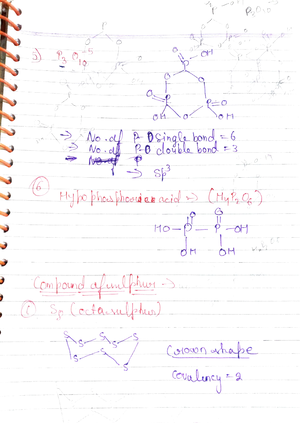 5) P3O10-5
O
OH
P
O
O
O
P
P
O
OH
O
OH
→ No. of P-O single bond = 6
→ No. of P-O double bond = 3
→ Sp3
⑥
Hypophosphoric acid → (H4P2O6)
O
O
HO — P — P — OH
OH
OH
Compound of sulphur → ..
① S8 (octasulphur)
S
S
S
S
S
S
S
S
Crown shape
Covalency = 2